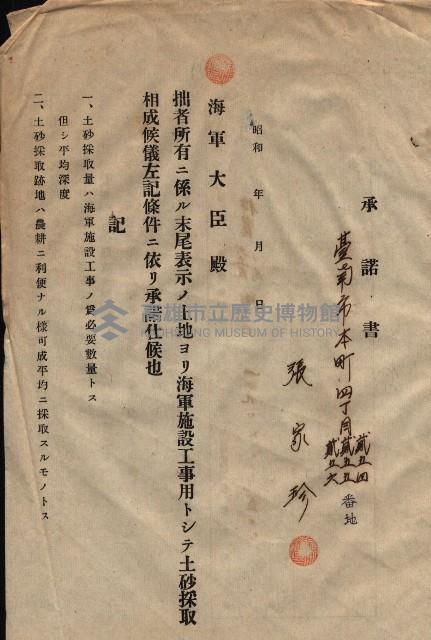 承諾書
臺南市本町四丁目貳五四
貳五五
貳五六
番地
張家珍
昭和 年 月 日
海軍大臣殿
拙者所有ニ係ル末尾表示ノ土地ヨリ海軍施設工事用トシテ土砂採取
相成候儀左記條件ニ依リ承諾仕候也
記
一、土砂採取量ハ海軍施設工事ノ爲必要數量トス
但シ平均深度
二、土砂採取跡地ハ農耕ニ利便ナル樣可成平均ニ採取スルモノトス
高雄市立歷史博物館
KAOHSIUNG MUSEUM OF HISTORY